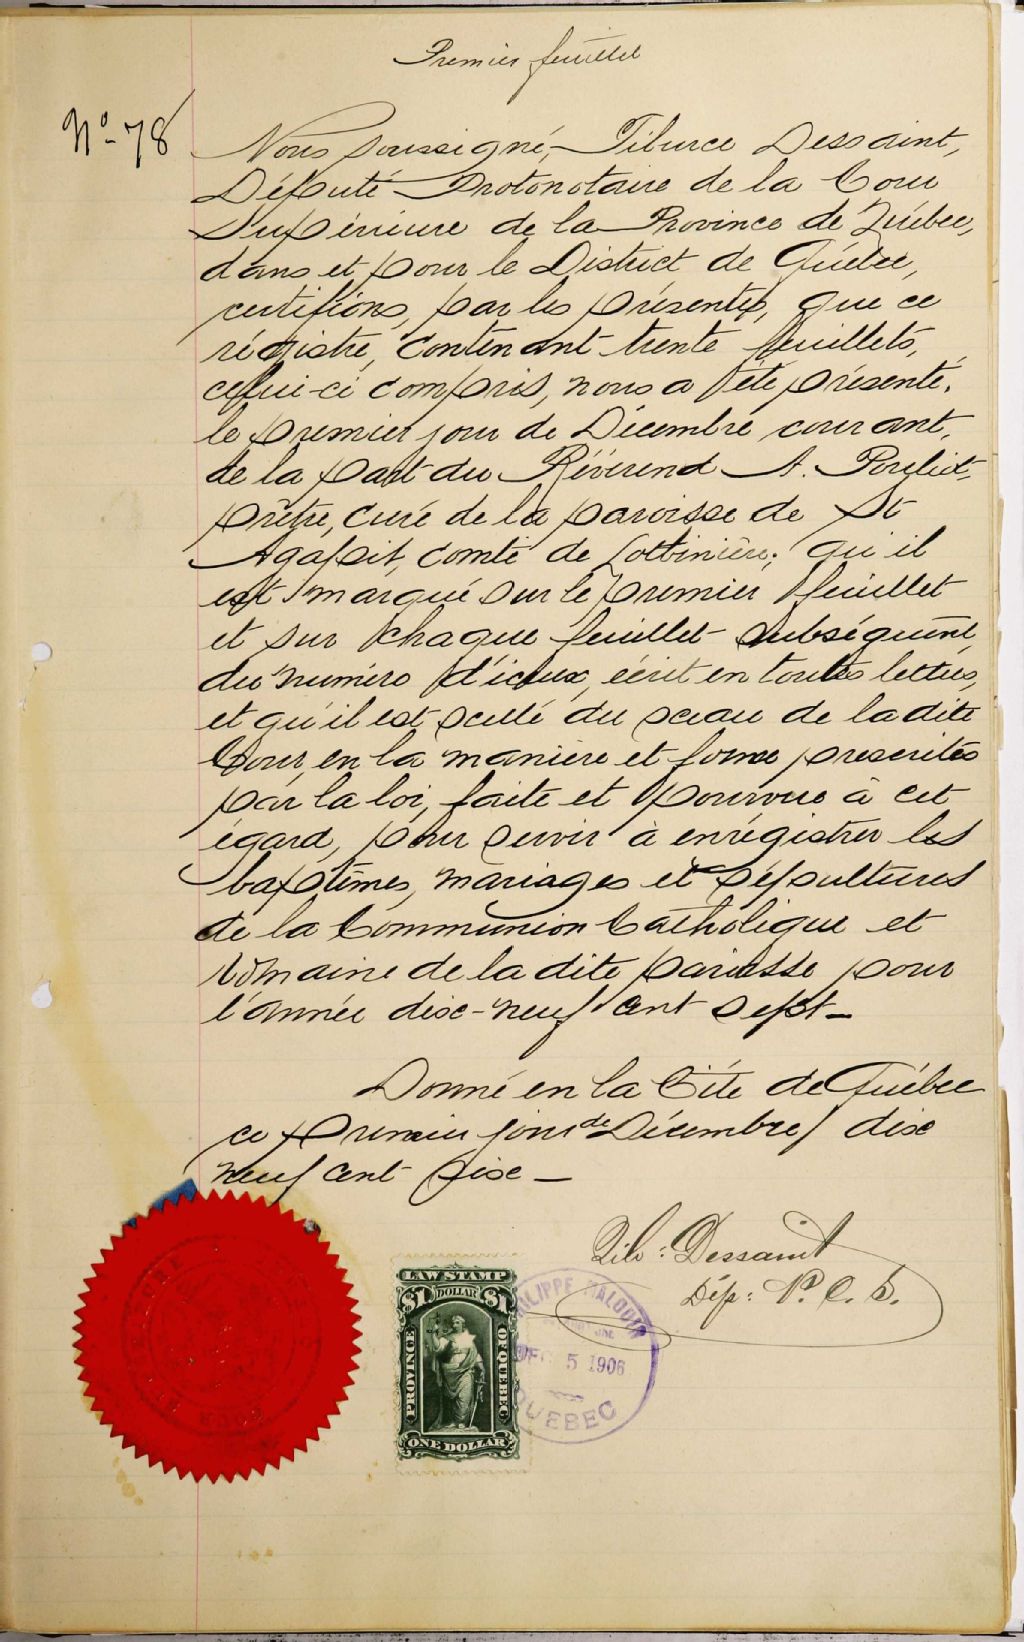 Premier feuillet
No- 78
Nous soussigné, Tiburce Dessaint,
Député Protonotaire de la Cour
Supérieure de la Province de Québec,
dans et pour le District de Québec,
certifions, par les présentes, que ce
régistre, contenant trente feuillets,
celui-ci compris, nous a été présenté,
le premier jour de Décembre courant,
de la part du Révérend A. Pouliot
prêtre, curé de la paroisse de St
Agapit, comté de Lotbinière; qu'il
est marqué sur le premier feuillet
et sur chaque feuillet subséquent,
du numéro d'iceux, écrit en toutes lettres,
et qu'il est scellé du sceau de la dite
Cour, en la manière et forme prescrites
par la loi, faite et pourvue à cet
égard, pour servir à enrégistrer les
baptêmes, mariages et sépultures
de la Communion Catholique et
romaine de la dite paroisse pour
l'année dix-neuf cent sept –
Donné en la Cité de Québec
ce premier jour de Décembre dix
neuf cent six –
Tib: Dessaint
Dép: P. C. S.
LAW STAMP
$1 DOLLAR $1
PROVINCE OF QUEBEC
ONE DOLLAR
PHILIPPE MALOUIN
DEC 5 1906
QUEBEC